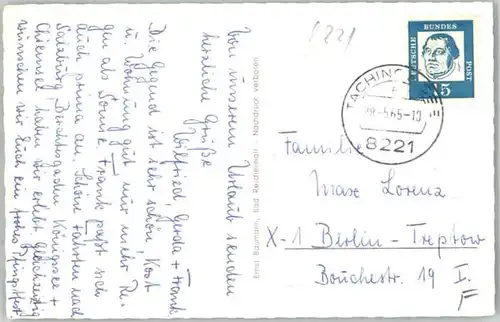 von unserem Urlaub senden
herzliche Grüße
Wilfried, Gerda + Frank.
Die Gegend ist sehr schön, Kost
u. Wohnung gut nur mehr Re-
gen als Sonne. Frank paßt sich
auch prima an. Schöne Fahrten nach
Salzburg, Berchtesgaden, Königssee +
Chiemsee haben wir erlebt. Gleichzeitig
wünschen wir Euch ein frohes Pfingstfest
Ernst Baumann, Bad Reichenhall - Nachdruck verboten
8221
DEUTSCHE BUNDES POST
15
TACHING
28.-5.65-10
8221
Familie
Max Lorenz
X-1 Berlin-Treptow
Bouchestr. 19 I.
F